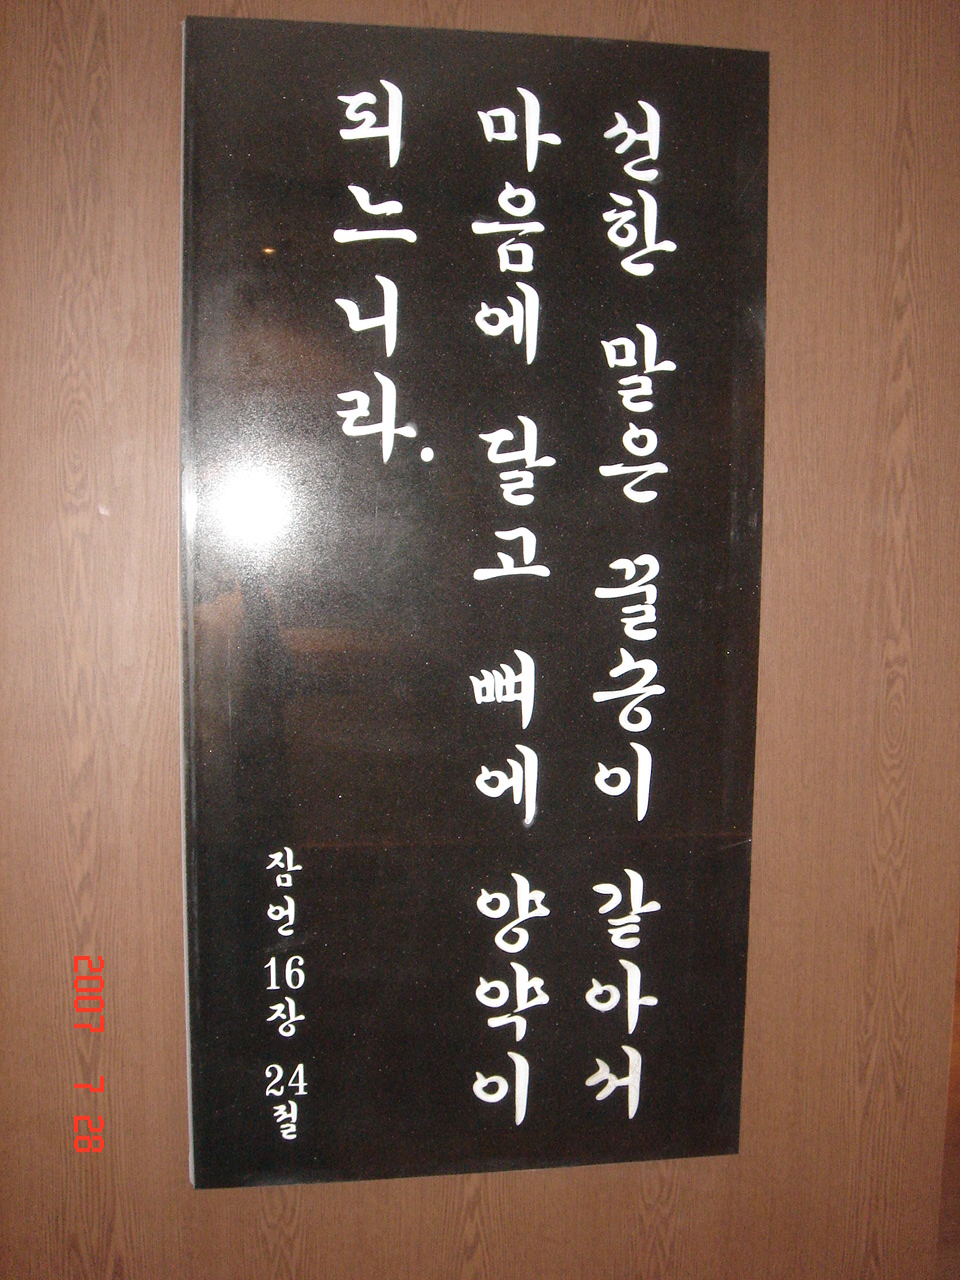 선한 말은 꿀송이 같아서
마음에 달고 뼈에 양약이
되느니라.
잠언 16장 24절
2007 7 28